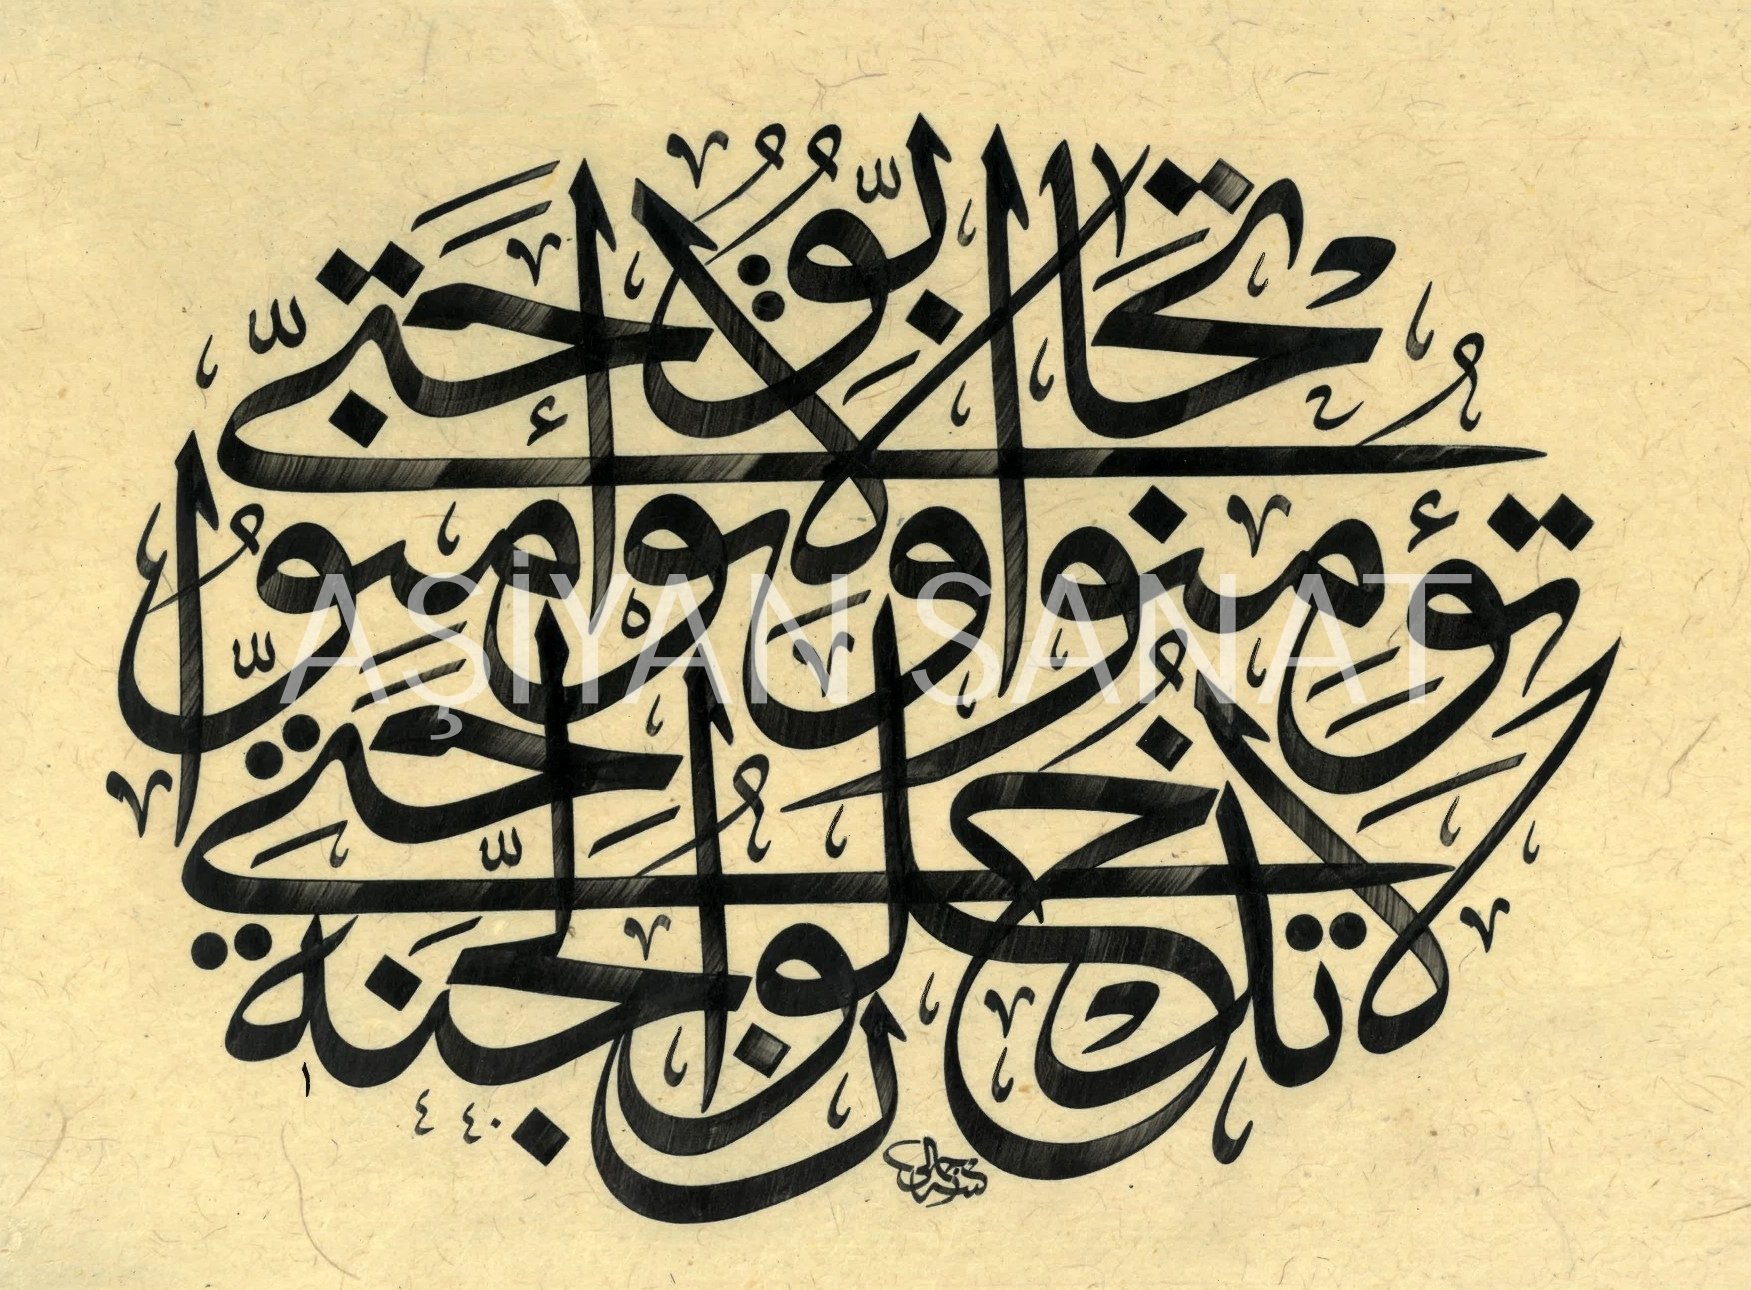 لا تدخلون الجنة حتى
تؤمنوا ولا تؤمنوا
حتى تحابوا
١٤٤٠
AŞİYAN SANAT